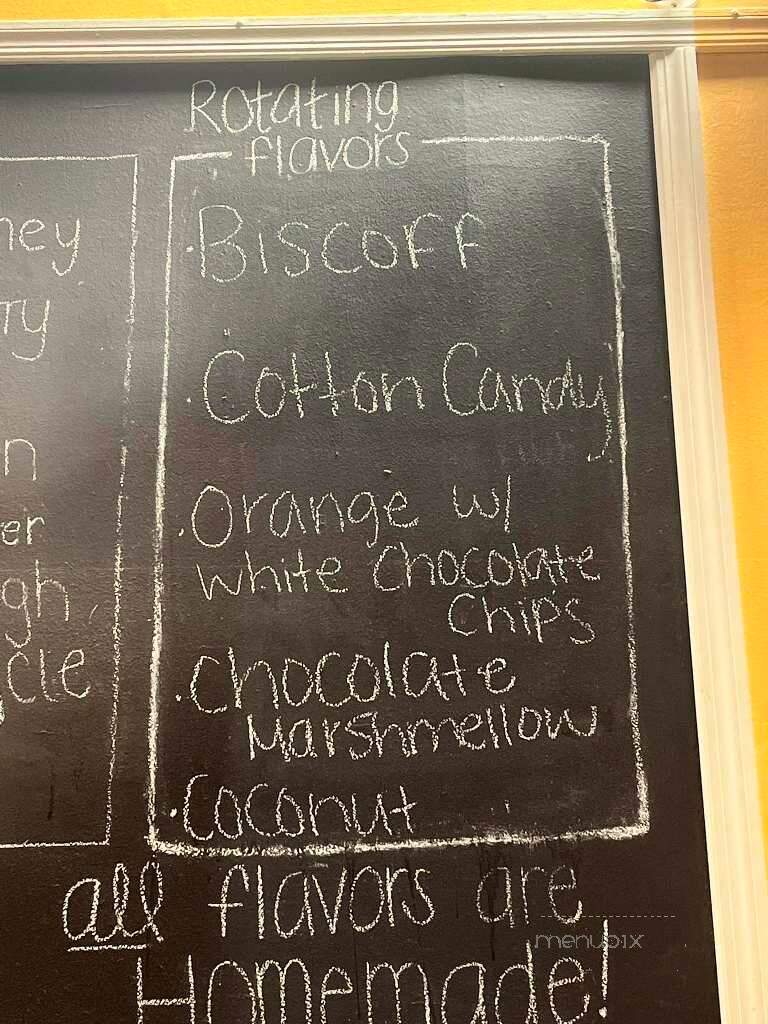 Rotating
flavors
·Biscoff
·Cotton Candy
·Orange w/
white chocolate
chips
·chocolate
Marshmellow
·Coconut
all flavors are
Homemade!
menupix